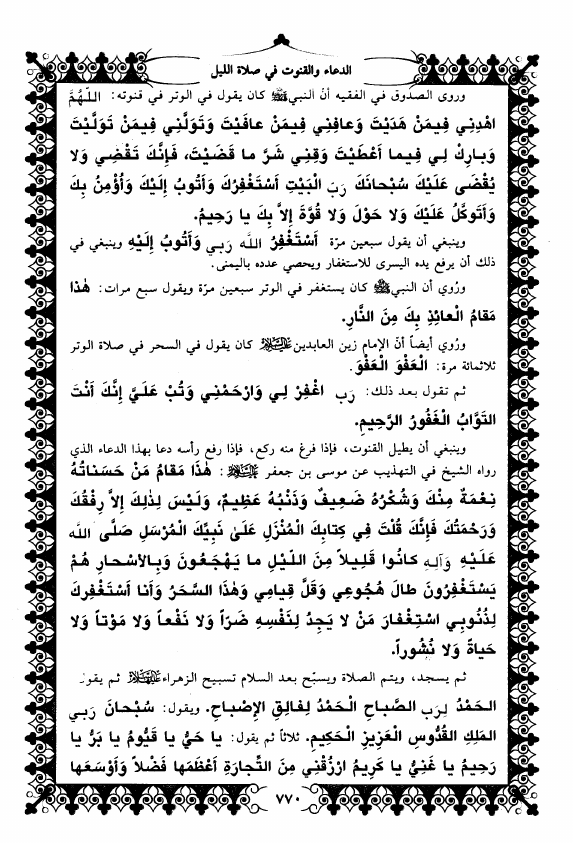 الدعاء والقنوت في صلاة الليل
وروى الصدوق في الفقيه أنّ النبي ﷺ كان يقول في الوتر في قنوته: اللّٰهُمَّ
اهْدِنِي فِيمَنْ هَدَيْتَ وَعافِنِي فِيمَنْ عافَيْتَ وَتَوَلَّنِي فِيمَنْ تَوَلَّيْتَ
وَبارِكْ لِي فِيما أَعْطَيْتَ وَقِنِي شَرَّ ما قَضَيْتَ، فَإِنَّكَ تَقْضِي وَلا
يُقْضَى عَلَيْكَ سُبْحانَكَ رَبَّ الْبَيْتِ أَسْتَغْفِرُكَ وَأَتُوبُ إِلَيْكَ وَأُؤْمِنُ بِكَ
وَأَتَوَكَّلُ عَلَيْكَ وَلا حَوْلَ وَلا قُوَّةَ إِلاَّ بِكَ يا رَحِيمُ.
وينبغي أن يقول سبعين مرّة أَسْتَغْفِرُ اللّٰهَ رَبِّي وَأَتُوبُ إِلَيْهِ وينبغي في
ذلك أن يرفع يده اليسرى للاستغفار ويحصي عدده باليمنى.
ورُوي أن النبي ﷺ كان يستغفر في الوتر سبعين مرّة ويقول سبع مرات: هٰذا
مَقامُ الْعائِذِ بِكَ مِنَ النَّارِ.
ورُوي أيضاً أنّ الإمام زين العابدين عليه السلام كان يقول في السحر في صلاة الوتر
ثلاثمائة مرة: الْعَفْوَ الْعَفْوَ.
ثم تقول بعد ذلك: رَبِّ اغْفِرْ لِي وَارْحَمْنِي وَتُبْ عَلَيَّ إِنَّكَ أَنْتَ
التَّوَّابُ الْغَفُورُ الرَّحِيمِ.
وينبغي أن يطيل القنوت، فإذا فرغ منه ركع، فإذا رفع رأسه دعا بهذا الدعاء الذي
رواه الشيخ في التهذيب عن موسى بن جعفر عليه السلام: هٰذا مَقامُ مَنْ حَسَناتُهُ
نِعْمَةٌ مِنْكَ وَشُكْرُهُ ضَعِيفٌ وَذَنْبُهُ عَظِيمٌ، وَلَيْسَ لِذٰلِكَ إِلاَّ رِفْقُكَ
وَرَحْمَتُكَ فَإِنَّكَ قُلْتَ فِي كِتابِكَ الْمُنْزَلِ عَلَىٰ نَبِيِّكَ الْمُرْسَلِ صَلَّى اللّٰه
عَلَيْهِ وَآلِهِ كانُوا قَلِيلاً مِنَ اللَّيْلِ ما يَهْجَعُونَ وَبِالأَسْحارِ هُمْ
يَسْتَغْفِرُونَ طالَ هُجُوعِي وَقَلَّ قِيامِي وَهٰذا السَّحَرُ وَأَنا أَسْتَغْفِرُكَ
لِذُنُوبِي اسْتِغْفارَ مَنْ لا يَجِدُ لِنَفْسِهِ ضَرّاً وَلا نَفْعاً وَلا مَوْتاً وَلا
حَياةً وَلا نُشُوراً.
ثم يسجد، ويتم الصلاة ويسبّح بعد السلام تسبيح الزهراء عليها السلام ثم يقول
الْحَمْدُ لِرَبِّ الصَّباحِ الْحَمْدُ لِفالِقِ الإِصْباحِ. ويقول: سُبْحانَ رَبِّي
المَلِكِ القُدُّوسِ الْعَزِيزِ الْحَكِيمِ. ثلاثاً ثم يقول: يا حَيُّ يا قَيُّومُ يا بَرُّ يا
رَحِيمُ يا غَنِيُّ يا كَرِيمُ ارْزُقْنِي مِنَ التِّجارَةِ أَعْظَمَها فَضْلاً وَأَوْسَعَها
٧٧٠